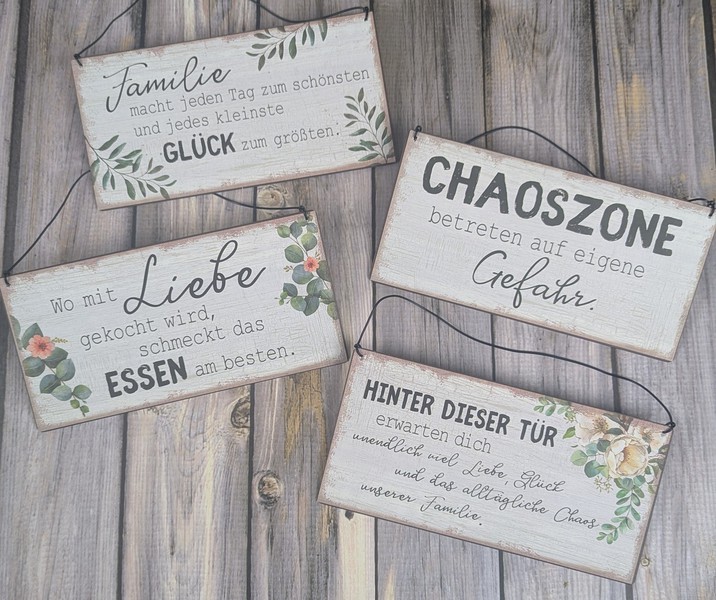 Familie
macht jeden Tag zum schönsten
und jedes kleinste
GLÜCK zum größten.
CHAOSZONE
betreten auf eigene
Gefahr.
Wo mit Liebe
gekocht wird,
schmeckt das
ESSEN am besten.
HINTER DIESER TÜR
erwarten dich
unendlich viel Liebe, Glück
und das alltägliche Chaos
unserer Familie.